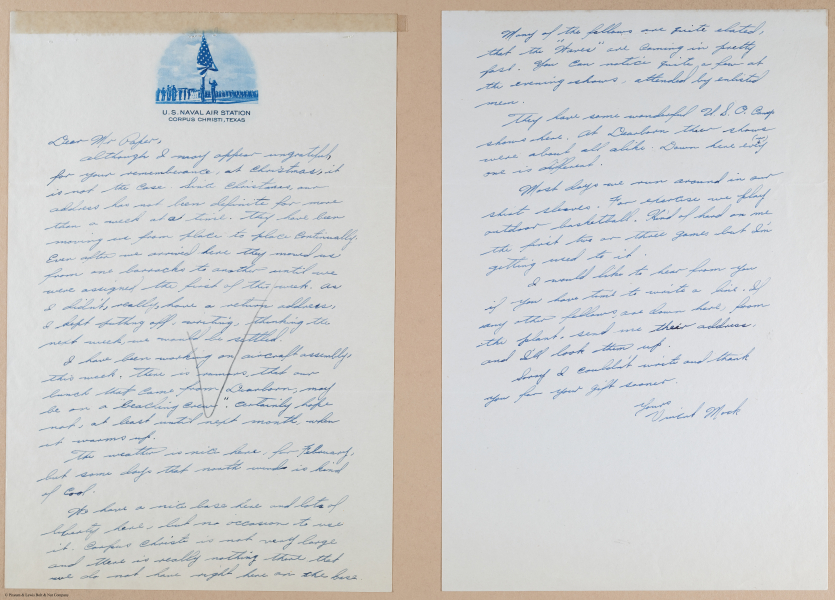 U.S. NAVAL AIR STATION
CORPUS CHRISTI, TEXAS
Dear Mr Paper,
Although I may appear ungrateful,
for your rememberance, at Christmas, it
is not the case. Since Christmas, our
address has not been definite for more
than a week at a time. They have been
moving us from place to place continually.
Even after we arrived here they moved us
from one barracks to another until we
were assigned the first of this week. As
I didn't, really, have a return address,
I kept putting off, writing, thinking the
next week, we would be settled.
I have been working on aircraft assembly,
this week. There is rumors, that our
bunch that came from Dearborn, may
be on a "Beaching Crew". Certainly hope
not, at least until next month, when
it warms up.
The weather is nice here, for February,
but some days that north winds is kind
of cool.
We have a nice base here and lots of
liberty here, but no occasion to use
it. Corpus Christi is not very large
and there is really nothing there that
we do not have right here on the base
Many of the fellows are quite elated,
that the "Waves" are coming in pretty
fast. You can notice quite a few at
the evening shows, attended by enlisted
men.
They have some wonderful U.S.O. Camp
shows here. At Dearborn their shows
were about all alike. Down here every
one is different.
Most days we run around in our
shirt sleeves. For exercise we play
outdoor basketball. Kind of hard on me
the first two or three games but I'm
getting used to it.
I would like to hear from you
if you have time to write a line. If
any other fellows are down here, from
the plant, send me their address.
and I'll look them up.
Sorry I couldn't write and thank
you for your gift sooner.
Yours
Mock